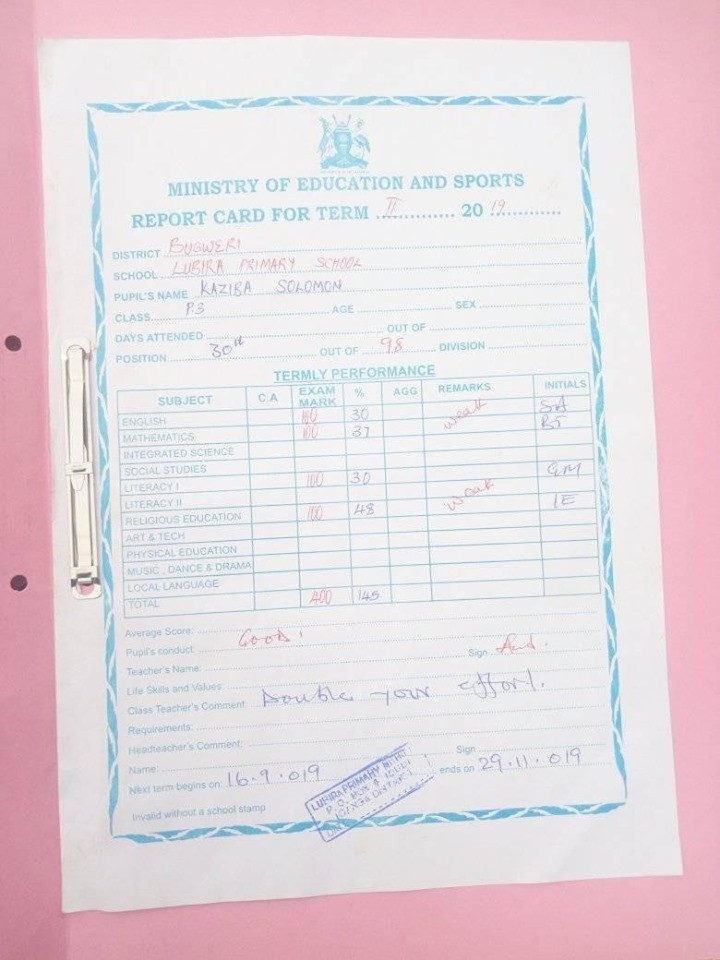 MINISTRY OF EDUCATION AND SPORTS
REPORT CARD FOR TERM II 20 19
DISTRICT BUGWERI
SCHOOL LUBIRA PRIMARY SCHOOL
PUPIL'S NAME KAZIBA SOLOMON
CLASS P.3 AGE SEX
DAYS ATTENDED OUT OF
POSITION 30th OUT OF 98 DIVISION
TERMLY PERFORMANCE
SUBJECT C.A EXAM MARK % AGG REMARKS INITIALS
ENGLISH 100 30 weak
MATHEMATICS 100 37
INTEGRATED SCIENCE
SOCIAL STUDIES
LITERACY I 100 30 G.M
LITERACY II weak
RELIGIOUS EDUCATION 100 48 IE
ART & TECH
PHYSICAL EDUCATION
MUSIC, DANCE & DRAMA
LOCAL LANGUAGE
TOTAL 400 145
Average Score:
Pupil's conduct: Good.
Teacher's Name: Sign
Life Skills and Values:
Class Teacher's Comment: Double your effort.
Requirements:
Headteacher's Comment:
Name: Sign
Next term begins on: 16.9.019 ends on 29.11.019
Invalid without a school stamp
LUBIRA PRIMARY
P.O. BOX